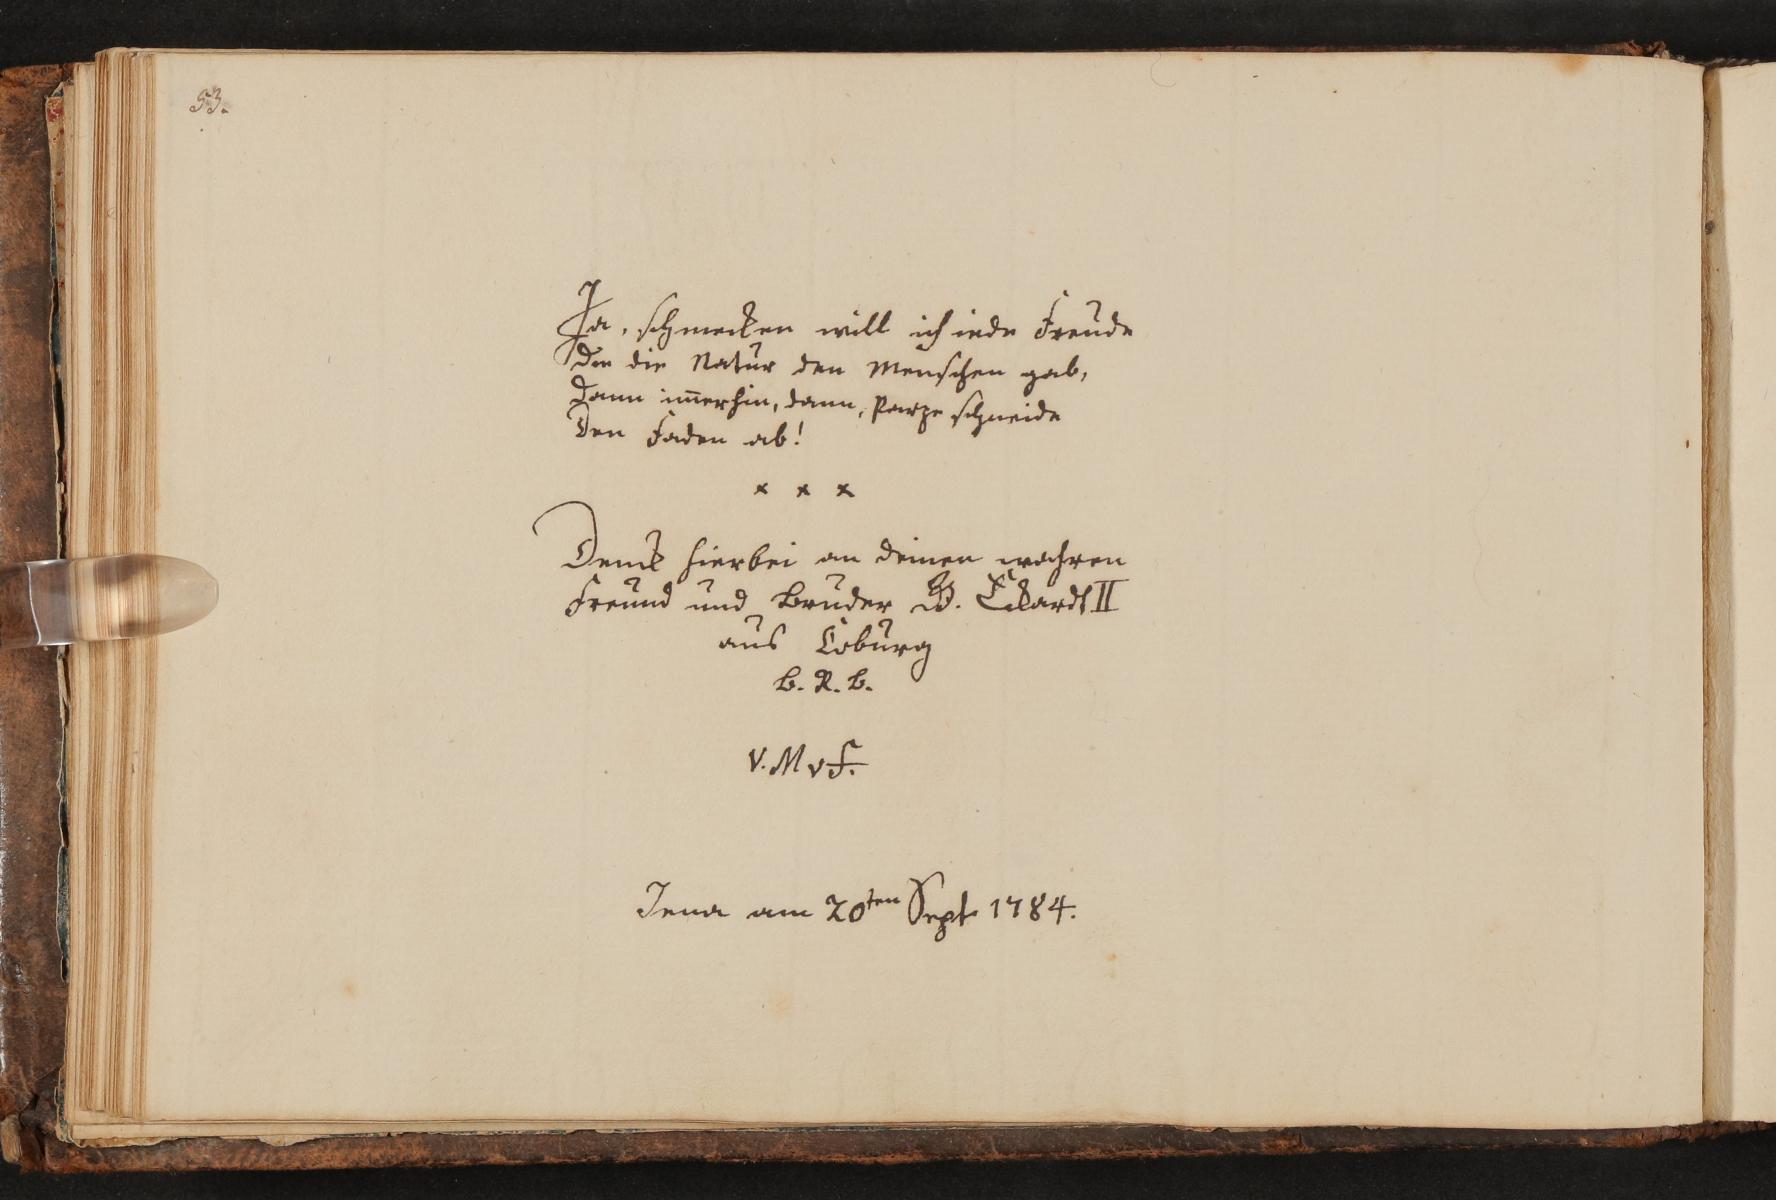 53.
Ja, schmecken will ich iede Freude
Die die Natur den Menschen gab,
Dann im̅erhin, dann, Parze schneide
Den Faden ab!
x x x
Denck hierbei an deinen wahren
Freund und Bruder Eckardt II
aus Coburg
B. R. B.
V. M v F.
Jena am 20ten Sept 1784.